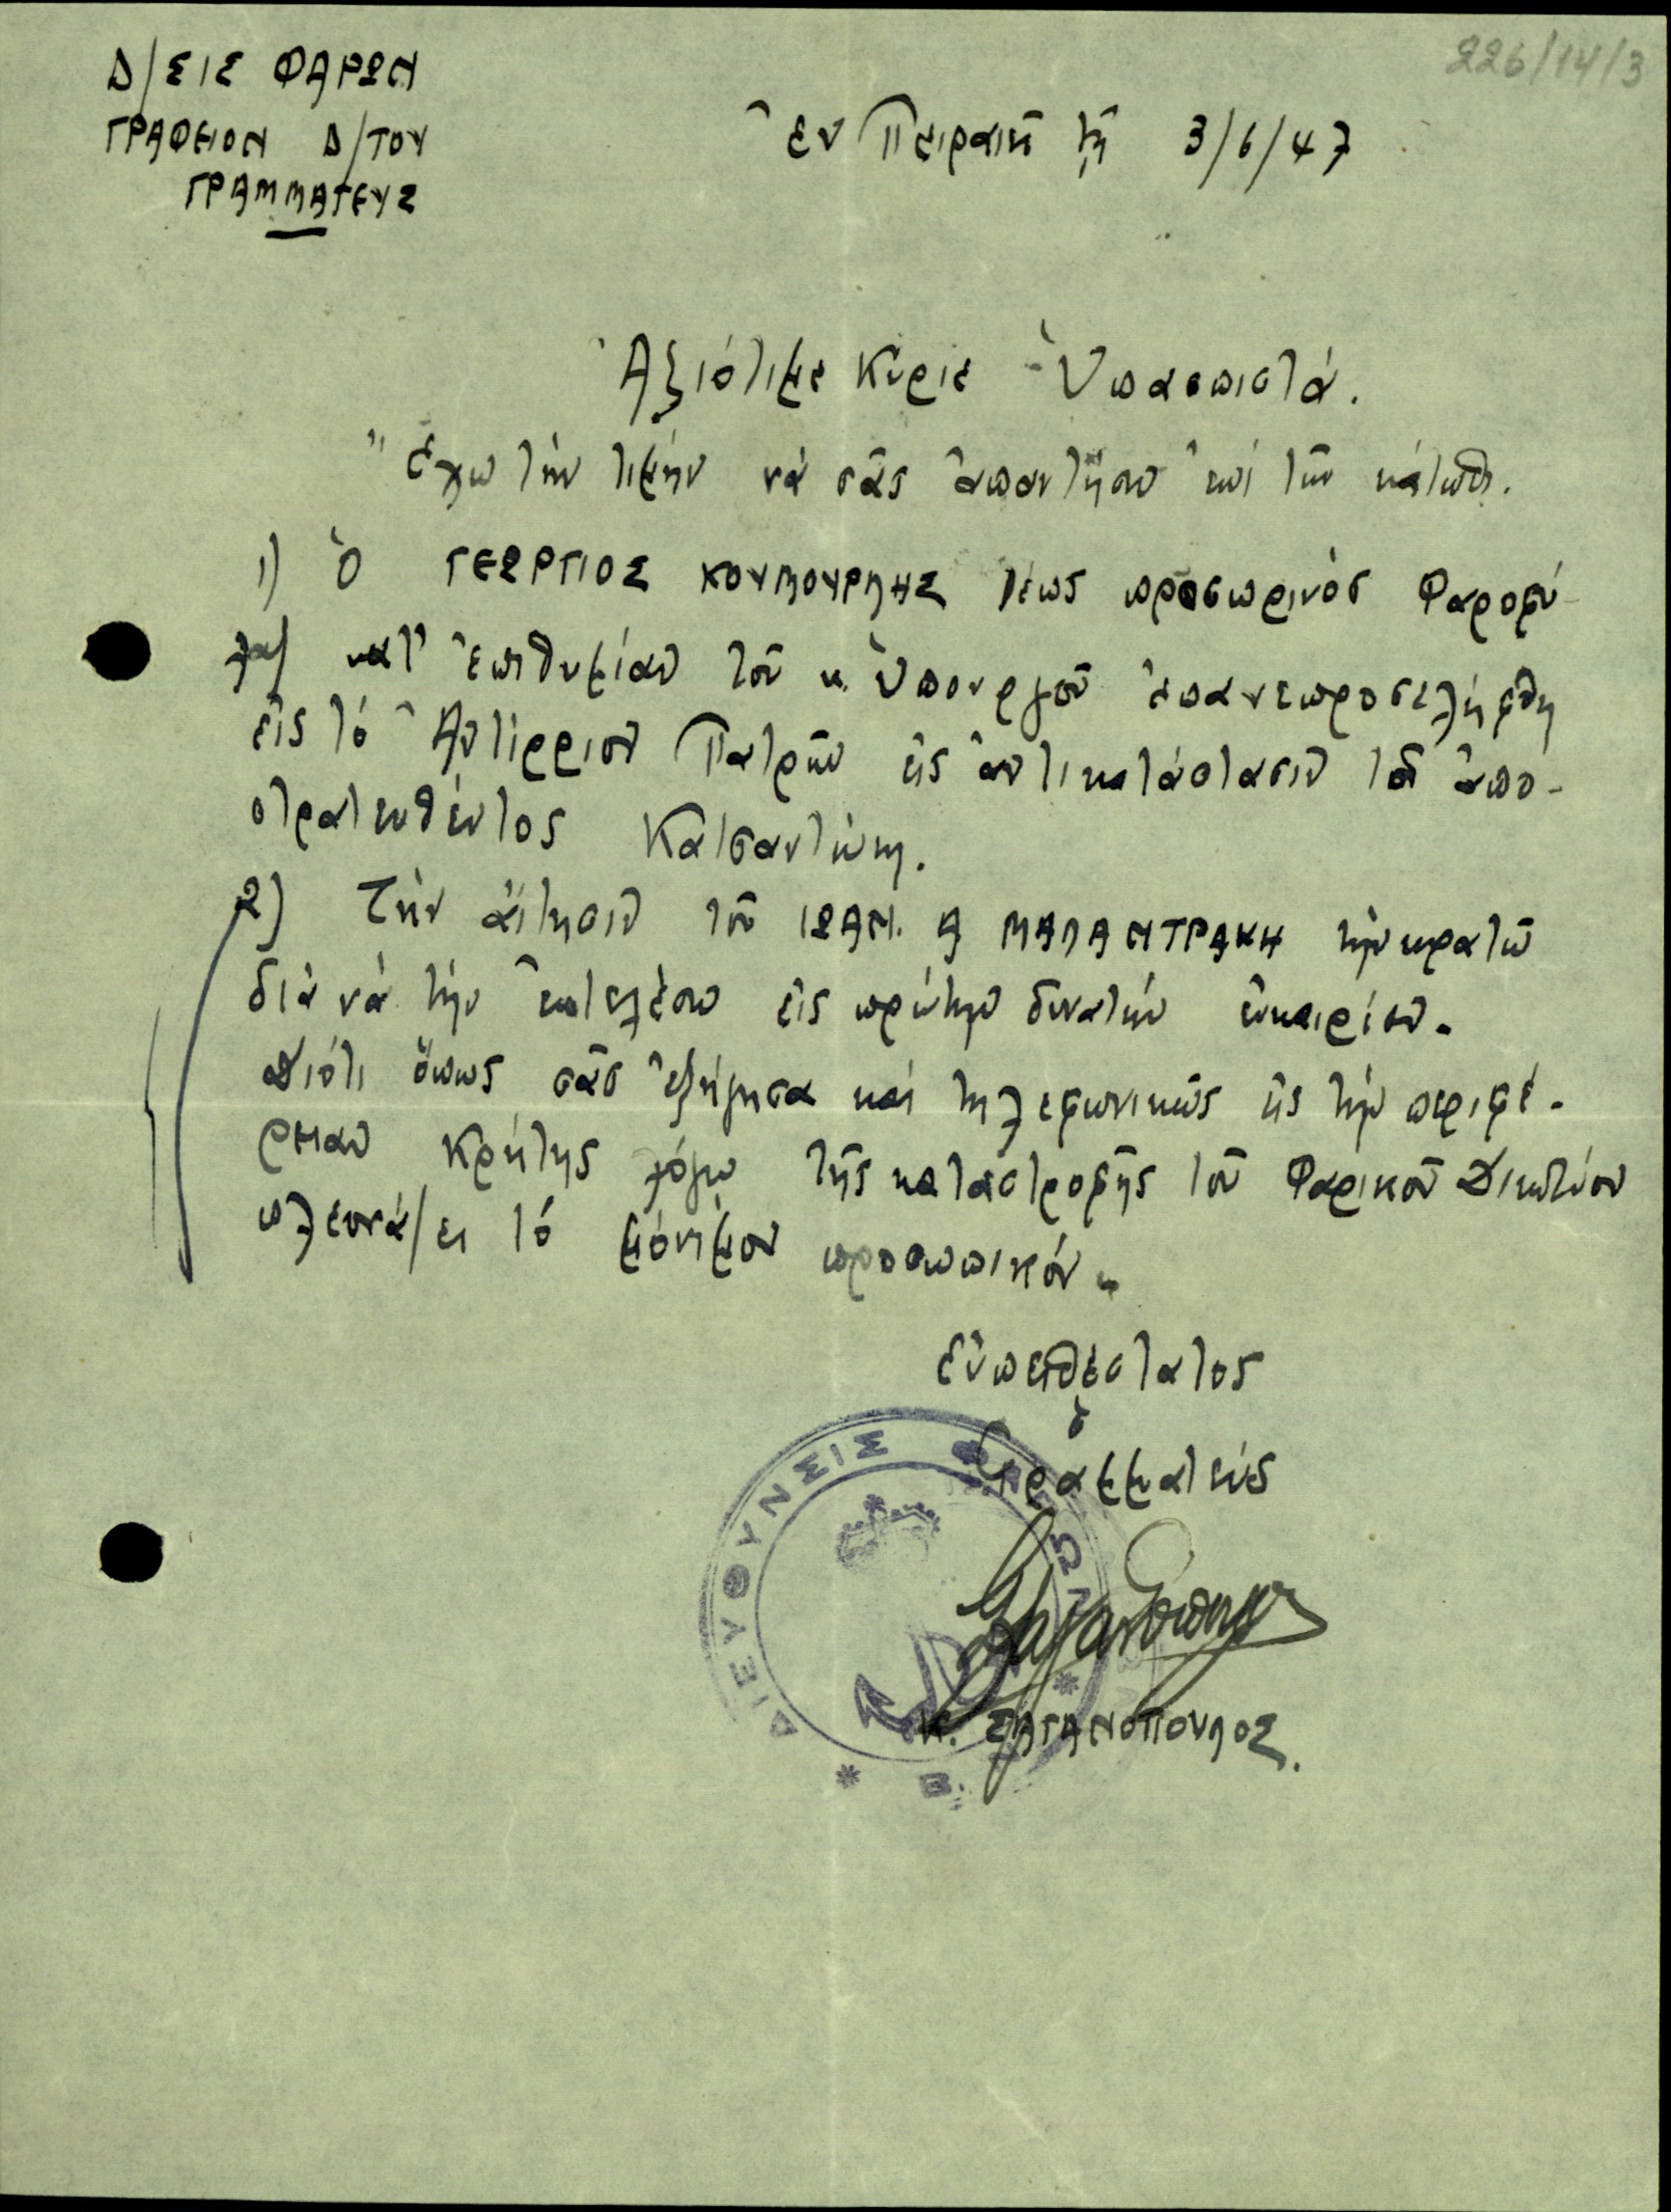 226/14/3
Δ/ΣΙΣ ΦΑΡΩΝ
ΓΡΑΦΕΙΟΝ Δ/ΤΟΥ
ΓΡΑΜΜΑΤΕΥΣ
Ἐν Πειραιεῖ τῇ 3/6/47
Ἀξιότιμε Κύριε Ὑπασπιστά.
Ἔχω τὴν τιμὴν νὰ σᾶς ἀπαντήσω ἐπὶ τῶν κάτωθι.
1) Ὁ ΓΕΩΡΓΙΟΣ ΚΟΥΜΟΥΡΛΗΣ τέως προσωρινὸς Φαροφύ-
λαξ κατ' ἐπιθυμίαν τοῦ κ. Ὑπουργοῦ ἐπανεπροσελήφθη
εἰς τὸ Ἀντίρριον Πατρῶν εἰς ἀντικατάστασιν τοῦ ἀπο-
στρατευθέντος Κατσαντώνη.
2) Τὴν αἴτησιν τοῦ ΙΩΑΝ. Α ΜΑΛΑΝΤΡΑΚΗ τὴν κρατῶ
διὰ νὰ τὴν ἐκτελέσω εἰς πρώτην δυνατὴν εὐκαιρίαν.
Διότι ὅπως σᾶς ἐξήγησα καὶ τηλεφωνικῶς εἰς τὴν περιφέ-
ρειαν Κρήτης λόγῳ τῆς καταστροφῆς τοῦ Φαρικοῦ Δικτύου
πλεονάζει τὸ μόνιμον προσωπικόν.
Εὐπειθέστατος
ὁ
Γραμματεὺς
Κ. ΣΑΓΑΝΟΠΟΥΛΟΣ.
ΔΙΕΥΘΥΝΣΙΣ ΦΑΡΩΝ